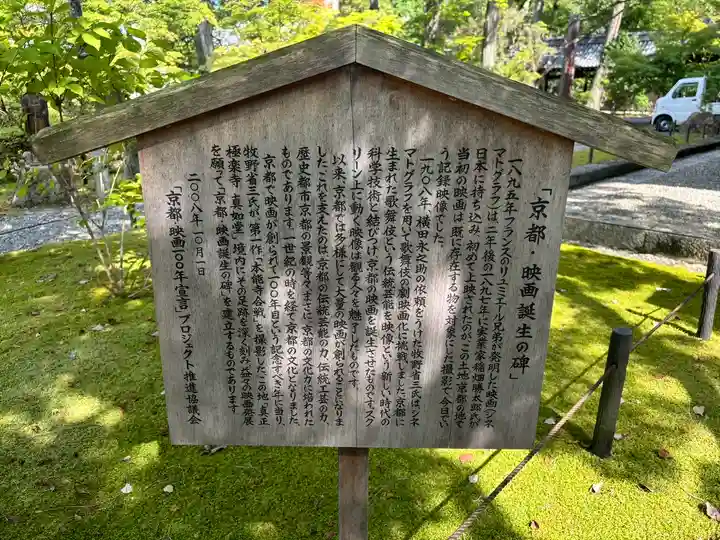 「京都・映画誕生の碑」
一八九五年フランスのリュミエール兄弟が発明した映画（シネ
マトグラフ）は二年後の一八九七年に実業家稲畑勝太郎氏が
日本に持ち込み、初めて上映されたのがこの土地、京都の地で
当初の映画は、既に存在する物を対象にした撮影で、今日でい
う記録映像でした。
一九〇八年、横田永之助の依頼をうけた牧野省三氏は、シネ
マトグラフを用いて歌舞伎の劇映画化に挑戦しました。京都に
生まれた歌舞伎という伝統芸能を映像という新しい時代の
科学技術と結びつけ、京都の映画を誕生させたものです。スク
リーン上に動く映像は観る人々を魅了したものです。
以来、京都では多様にして大量の映画が創られることになりま
した。これを支えたのは、京都の伝統芸能の力、伝統工芸の力、
歴史都市京都の景観等々、まさに京都の文化力に培われた
ものであります。一世紀の時を経て京都の文化となりました。
京都で映画が創られて一〇〇年目という記念すべき年に当り、
牧野省三氏が、第一作「本能寺合戦」を撮影したこの地、真正
極楽寺・真如堂境内にその足跡を深く刻み、益々の映画発展
を願って「京都・映画誕生の碑」を建立するものであります。
二〇〇八年一〇月一日
「京都・映画一〇〇年宣言」プロジェクト推進協議会